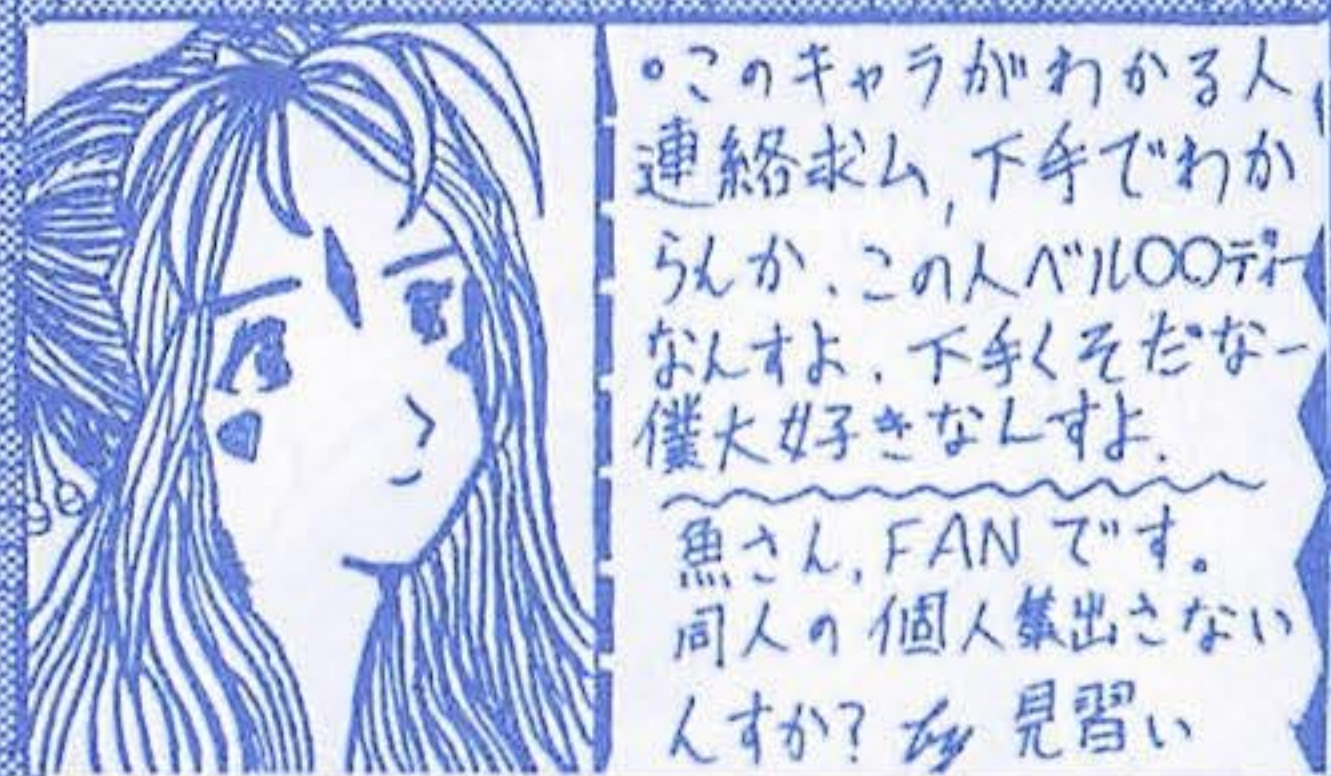 ・このキャラがわかる人
連絡求ム,下手でわか
らんか、この人ベル〇〇ディー
なんすよ、下手くそだなー
僕大好きなんすよ、
魚さん,FANです。
同人の個人集出さない
んすか? by 見習い